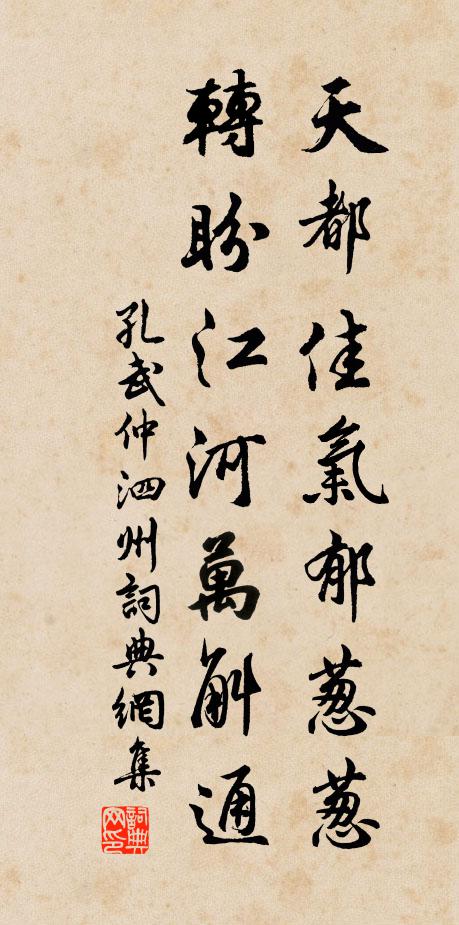 天都佳氣郁葱葱
轉盼江河萬斛通
孔武仲泗州詞典網集
詞典网印